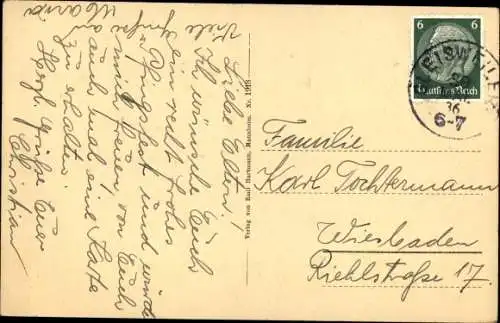 Liebe Eltern!
Ich wünsche Euch
ein recht frohes
Pfingstfest und würde
mich freuen, von Euch
auch mal eine Karte
zu erhalten.
Herzl. Grüße Euer
Christian
Viele Grüße
Maria
Verlag von Emil Hartmann, Mannheim. Nr. 1918
6 6
Deutsches Reich
36
6-7
Familie
Karl Tochtermann
Wiesbaden
Riehlstraße 17.